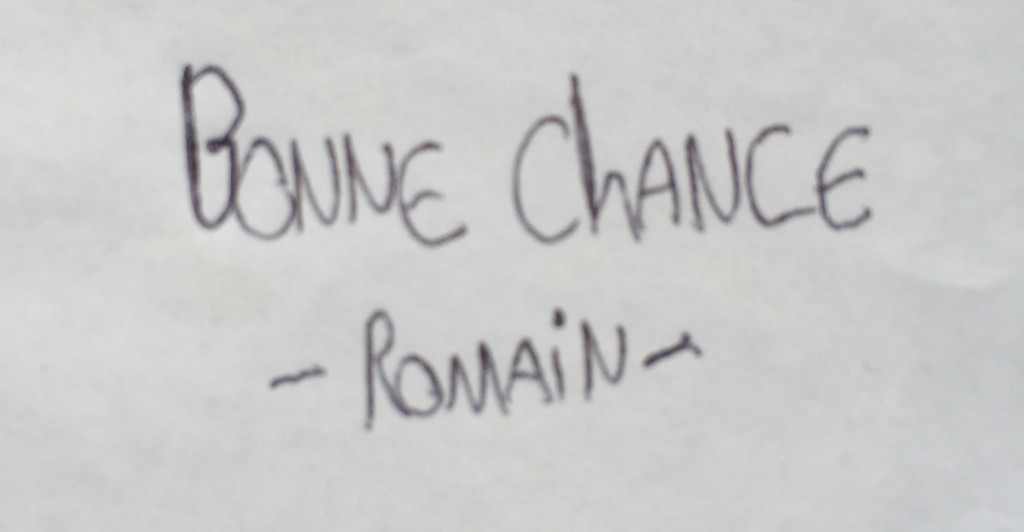 BONNE ChANCE
- ROMAiN -